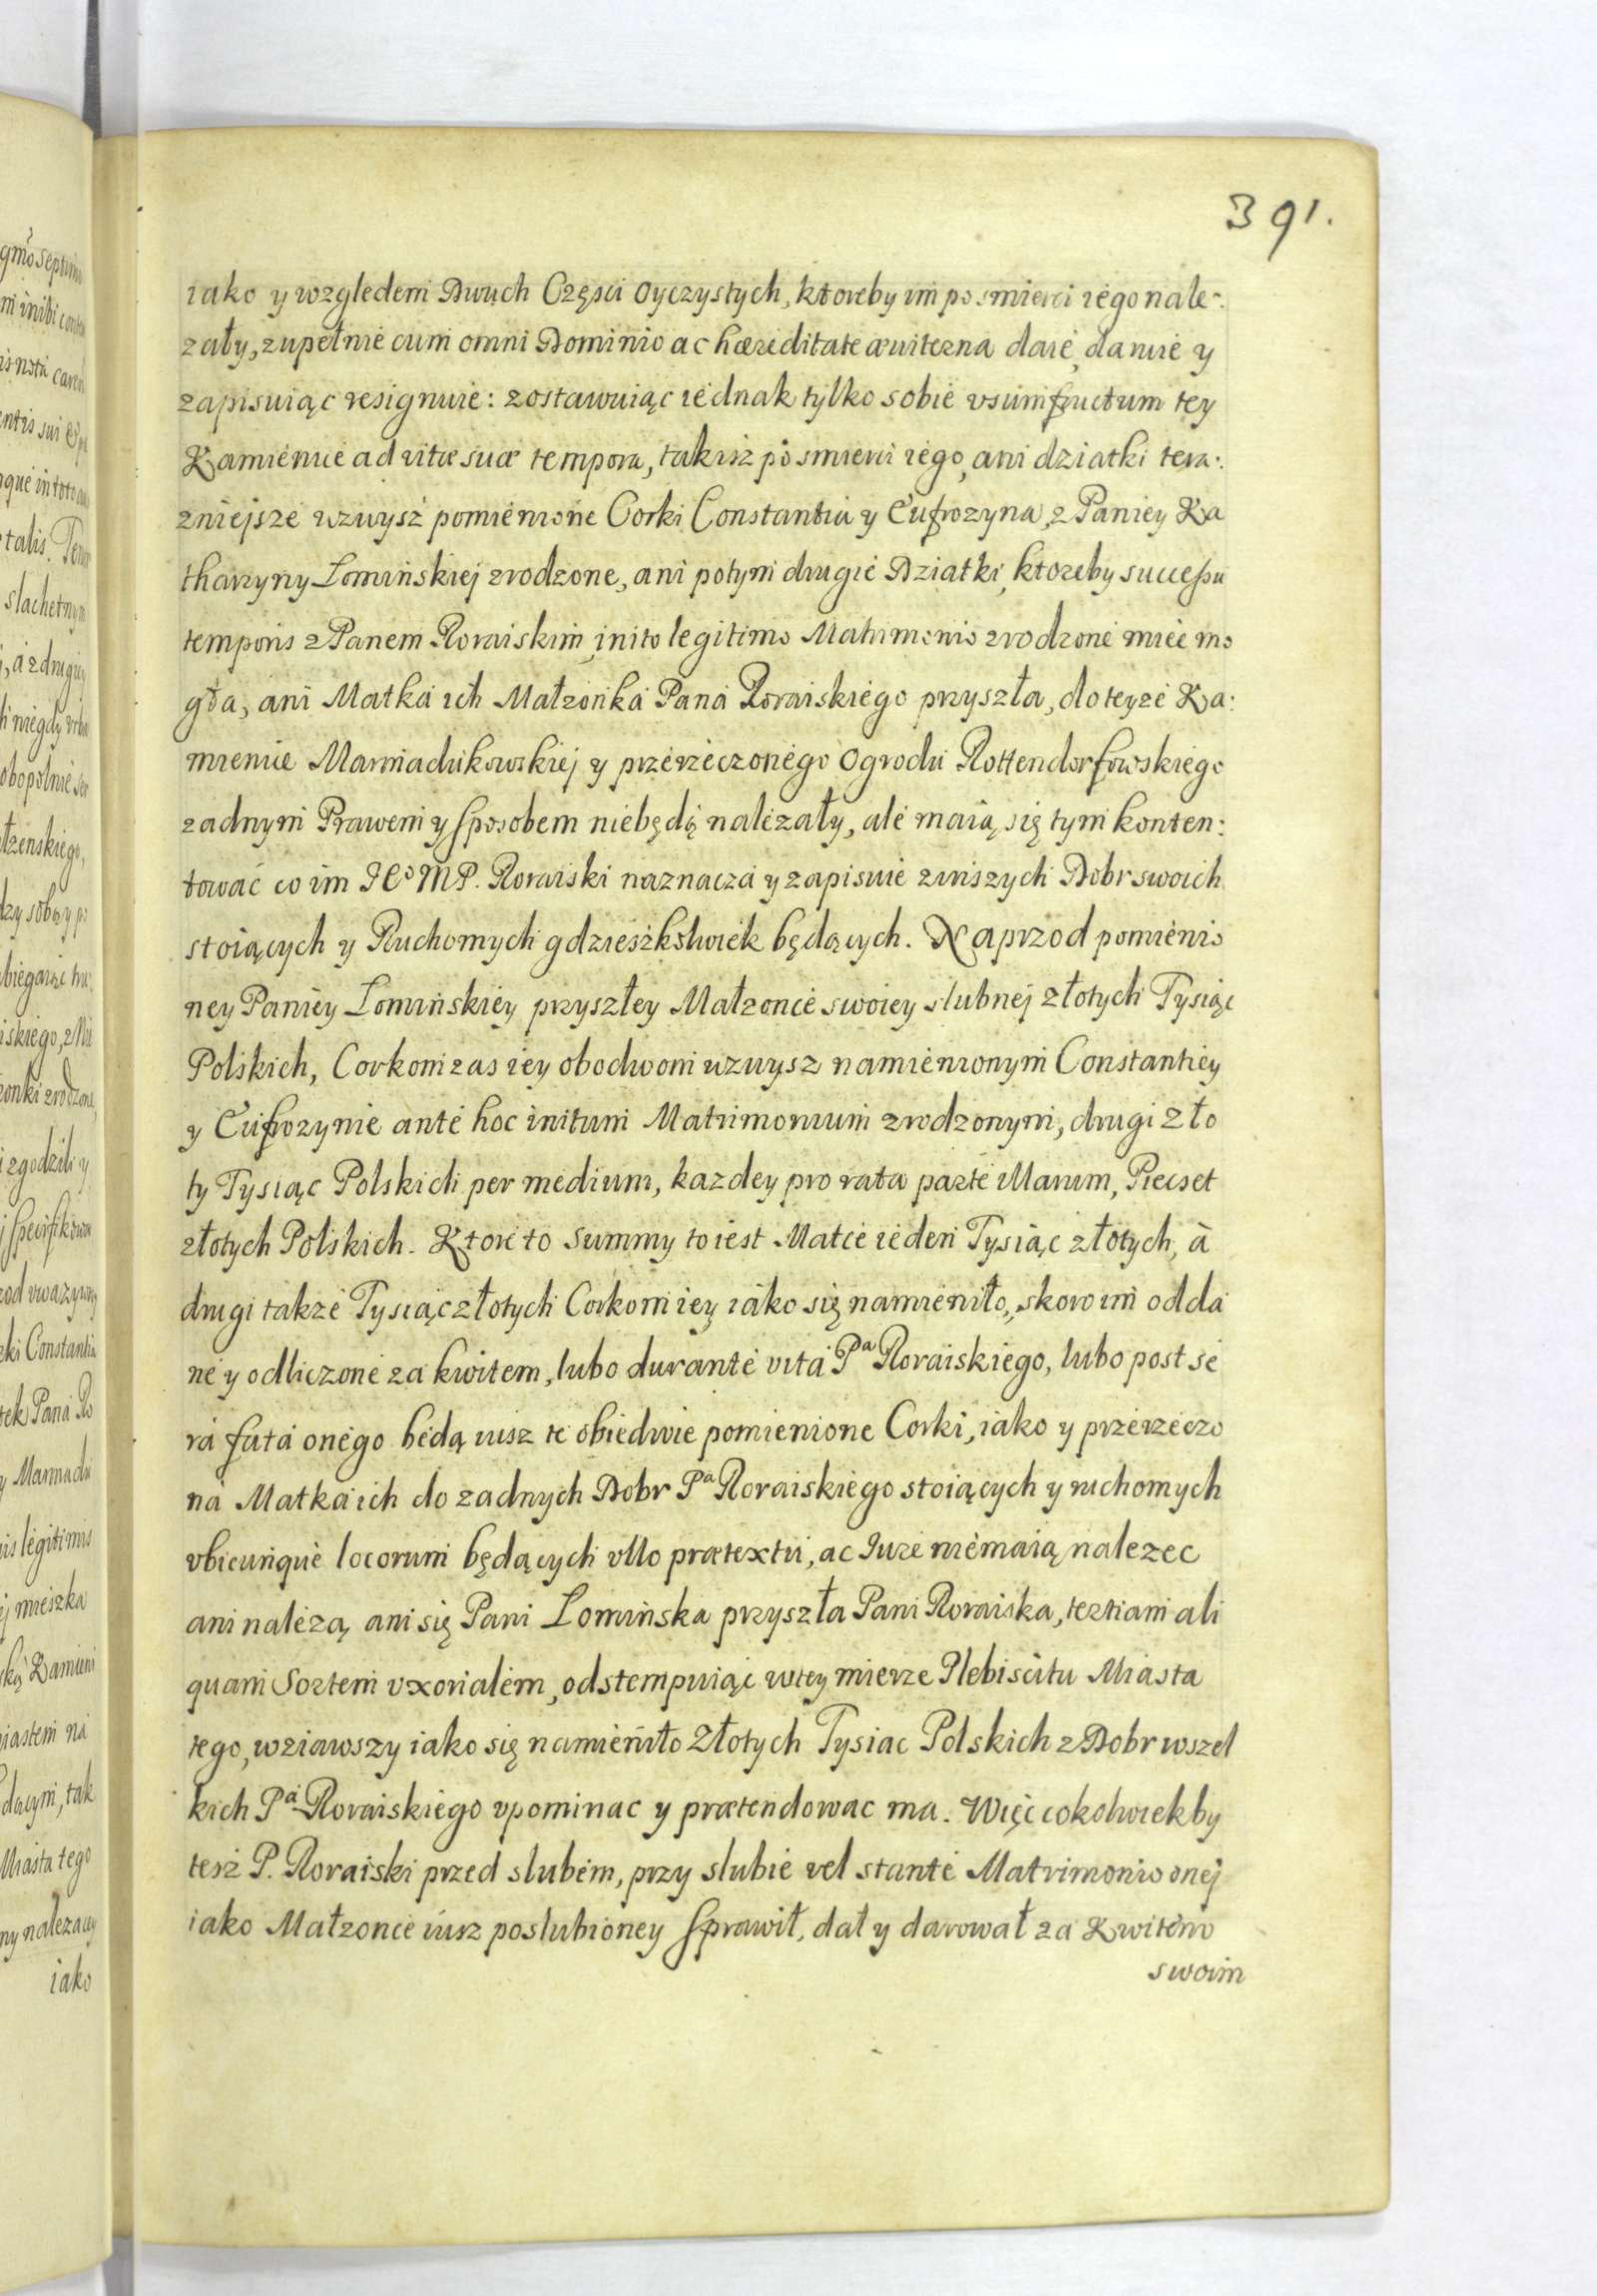 391.
iako y wzgledem Dwuch Części Oyczystych, ktoreby im po smierci iego nale-:
zały, zupełnie cum omni Dominio ac hæreditate æviterna daie, daruie y
zapisuiąc resignuie: zostawuiąc iednak tylko sobie vsumfructum tey
Kamienice ad vitæ suæ tempora, takisz po smierci iego, ani dziatki tera:
zniejsze wzwysz pomienione Corki Constantia y Eufrozyna, z Paniey Ka
tharzyny Lominskiej zrodzone, ani potym drugie Dziatki, ktoreby successu
temporis z Panem Roraiskim, inito legitimo Matrimonio zrodzone miec mo
gła, ani Matka ich Małzonka Pana Roraiskiego przyszła, do teyze Ka:
mienice Marmadukowskiej y przerzeczonego Ogrodu Rottendorfowskiego
zadnym Prawem y sposobem niebędą nalezały, ale maią się tym konten:
tować co im JE° M P. Roraiski naznacza y zapisuie zwiszych Dobr swoich
stoiących y Ruchomych gdzieszkolwiek będących. Naprzod pomienio
ney Paniey Lominskiey przyszłey Małzonce swoiey slubnej złotych Tysiąc
Polskich, Corkom zas iey obodwom wzwysz namienionym Constantiey
y Eufrozynie ante hoc initum Matrimonium zrodzonym, drugi zło
ty Tysiąc Polskich per medium, kazdey pro rata parte illarum, Piecset
złotych Polskich. Ktore to Summy to iest Matce ieden Tysiąc złotych, à
drugi takze Tysiąc złotych Corkom iey iako się namieniło, skoro im odda
ne y odliczone za kwitem, lubo durante vita Pª Roraiskiego, lubo post se
ra fata onego będą iusz te obiedwie pomienione Corki, iako y przerzeczo
na Matka ich do zadnych Dobr Pª Roraiskiego stoiących y ruchomych
vbicunque locorum będących vllo prætextu, ac Jure niemaią nalezec
ani nalezą, ani się Pani Lominska przyszła Pani Roraiska, tertiam ali
quam Sortem vxorialem, odstempuiąc wtey mierze Plebiscitu Miasta
tego, wziawszy iako się namieniło Złotych Tysiac Polskich z Dobr wszel
kich Pª Roraiskiego vpominac y prætendowac ma. Więc cokolwiekby
tesz P. Roraiski przed slubem, przy slubie vel stante Matrimonio onej
iako Małzonce iusz poslubioney sprawił, dał y darował za Kwitem
swoim